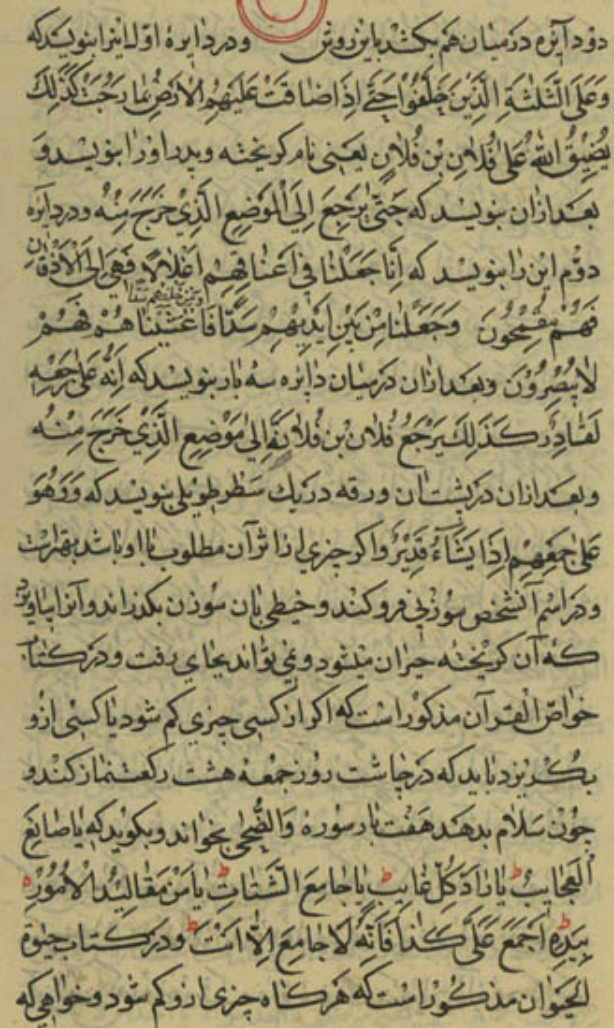 دو دایره در میان هم بکشد باین روش و در دایره اول اینرا بنویسد که
وَعَلَی الثَّلٰثَةِ الَّذِینَ خُلِّفُوا حَتّٰی اِذَا ضَاقَتْ عَلَیْهِمُ الْاَرْضُ بِمَا رَحُبَتْ کَذٰلِکَ
یُضَیِّقُ اللهُ عَلٰی فُلَانِ بْنِ فُلَانٍ یعنی نام کریخته و پدر او را بنویسد و
بعد ازان بنویسد که حَتّٰی یَرْجِعَ اِلَی الْمَوْضِعِ الَّذِی خَرَجَ مِنْهُ و در دایره
دوّم این را بنویسد که اِنَّا جَعَلْنَا فِی اَعْنَاقِهِمْ اَغْلَالًا فَهِیَ اِلَی الْاَذْقَانِ
فَهُمْ مُقْمَحُونَ وَجَعَلْنَا مِنْ بَیْنِ اَیْدِیهِمْ سَدًّا ومن خلفهم سدا فَاَغْشَیْنَاهُمْ فَهُمْ
لَا یُبْصِرُونَ و بعد ازان در میان دایره سه بار بنویسد که اِنَّهُ عَلٰی رَجْعِهِ
لَقَادِرٌ کَذٰلِکَ یَرْجِعُ فُلَان بْن فُلَانَةٍ اِلٰی مَوْضِعِ الَّذِی خَرَجَ مِنْهُ
و بعد ازان در پشت آن ورقه در یك سطر طویلی بنویسد که وَهُوَ
عَلٰی جَمْعِهِمْ اِذَا یَشَآءُ قَدِیْرٌ و اکر چیزی از اثر آن مطلوب با او باشد بهترست
و در اسم آنشخص سوزنی فرو کند و خیطی بان سوزن بکذراند و آنرا بیاویزد
که آن کریخته حیران میشود و نمی تواند بجای رفت و در کتاب
خواصّ القرآن مذکور است که اکر از کسی چیزی کم شود یا کسی ازو
بکریزد باید که در چاشت روز جمعه هشت رکعت نماز کند و
چون سلام بدهد هفت بار سورهٔ وَالضُّحٰی بخواند و بکوید که یَا صَانِعَ
الْعَجَایِبِ یَا رَادَّ کُلِّ غَایِبٍ یَا جَامِعَ الشَّتَاتِ یَا مَنْ مَقَالِیدُ الْاُمُورِ
بِیَدِهِ اجْمَعْ عَلَیَّ کَذَا فَاِنَّهُ لَا جَامِعَ اِلَّا اَنْتَ و در کتاب حیوة
الحیوان مذکور است که هرکاه چیزی ازو کم شود و خواهی که